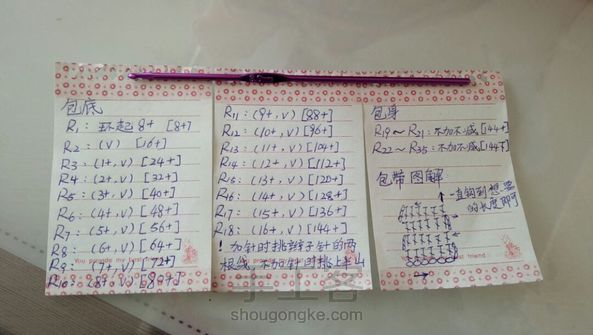 包底
R1: 环起8+ [8+]
R2: (V) [16+]
R3: (1+, V) [24+]
R4: (2+, V) [32+]
R5: (3+, V) [40+]
R6: (4+, V) [48+]
R7: (5+, V) [56+]
R8: (6+, V) [64+]
R9: (7+, V) [72+]
R10: (8+, V) [80+]
R11: (9+, V) [88+]
R12: (10+, V) [96+]
R13: (11+, V) [104+]
R14: (12+, V) [112+]
R15: (13+, V) [120+]
R16: (14+, V) [128+]
R17: (15+, V) [136+]
R18: (16+, V) [144+]
! 加针时挑辫子针的两
根线,不加针时挑上半山
包身
R19~R21: 不加不减 [144+]
R22~R35: 不加不减 [144T]
包带图解
一直钩到想要
的长度即可
手工客
shougongke.com